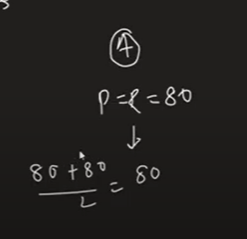 ④
P = R = 80
↓
80 + 80 / 2 = 80